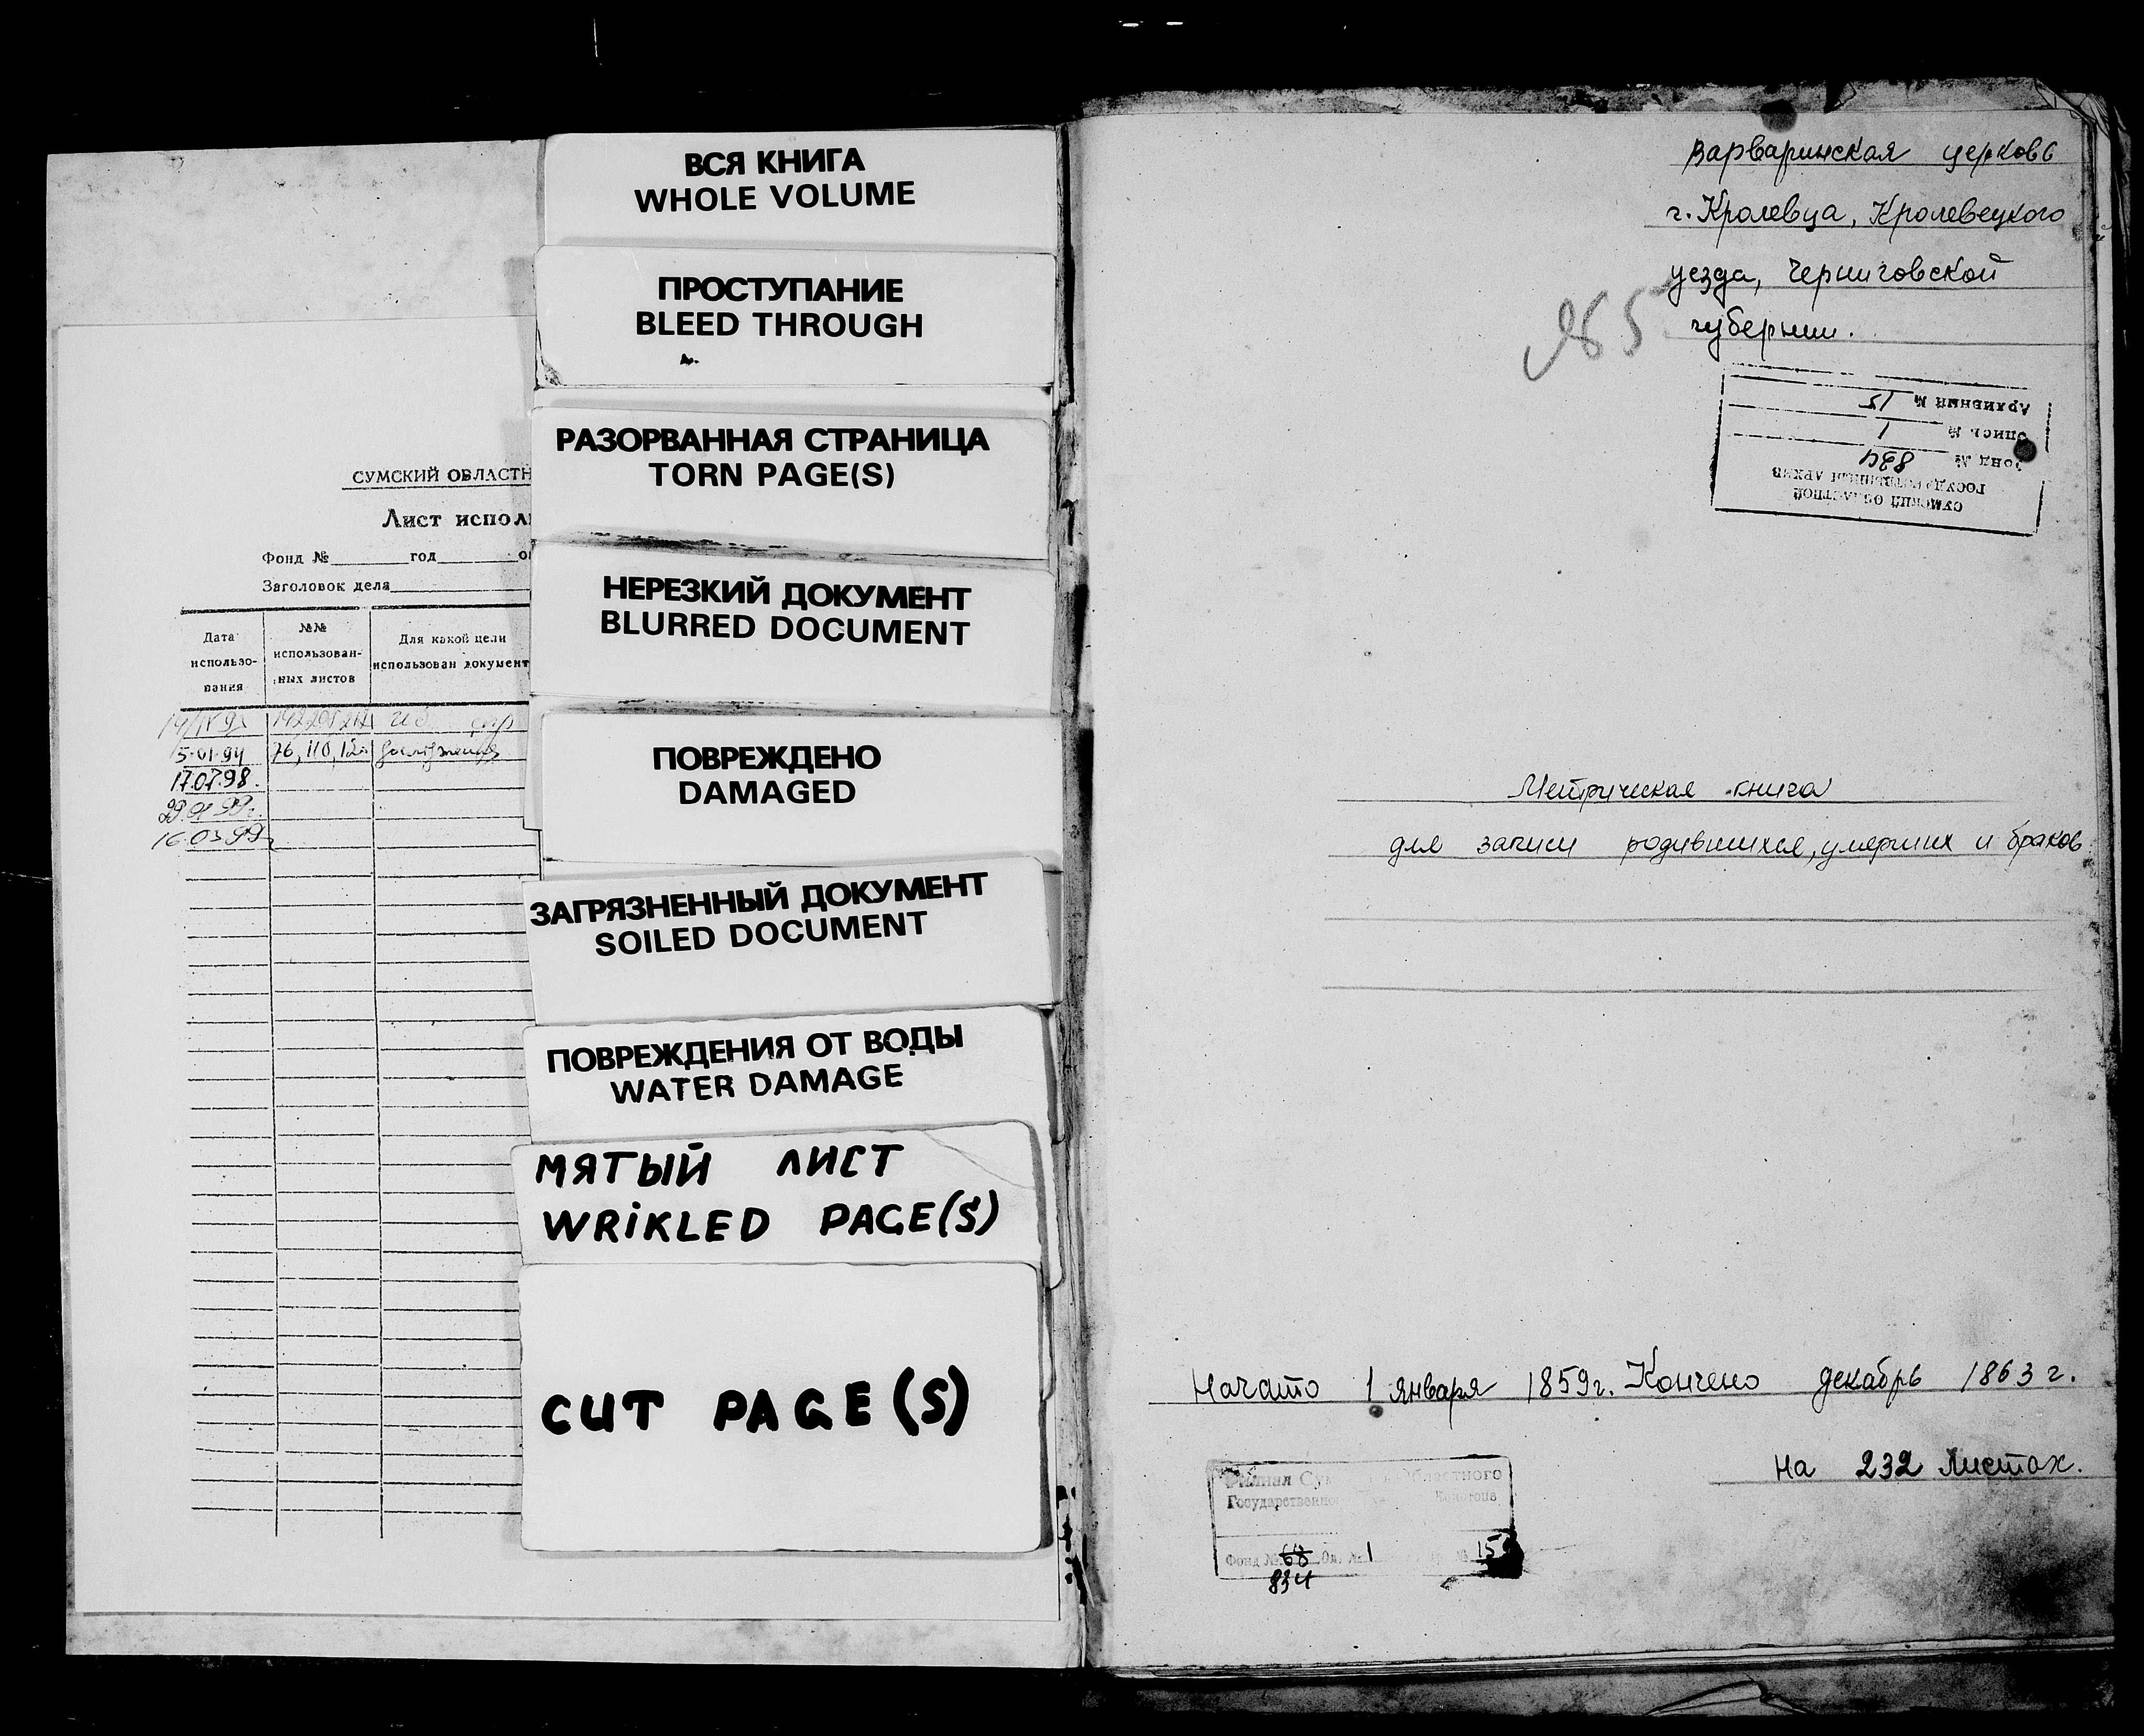 СУМСКИЙ ОБЛАСТН
Лист исполь
Фонд № год о
Заголовок дела
Дата использо-вания
№№ использован-ных листов
Для какой цели использован документ
5.01.94 76, 110,
17.07.98.
16.03.99
ВСЯ КНИГА
WHOLE VOLUME
ПРОСТУПАНИЕ
BLEED THROUGH
РАЗОРВАННАЯ СТРАНИЦА
TORN PAGE(S)
НЕРЕЗКИЙ ДОКУМЕНТ
BLURRED DOCUMENT
ПОВРЕЖДЕНО
DAMAGED
ЗАГРЯЗНЕННЫЙ ДОКУМЕНТ
SOILED DOCUMENT
ПОВРЕЖДЕНИЯ ОТ ВОДЫ
WATER DAMAGE
МЯТЫЙ ЛИСТ
WRiKLED PAGE(S)
CUT PAGE(S)
Варваринская церковь
г. Кролевца, Кролевецкого
уезда, Черниговской
губернии.
№5
СУМСКИЙ ОБЛАСТНОЙ
ГОСУДАРСТВЕННЫЙ АРХИВ
Фонд № 834
Опись № 1
Архивный № 15
Метрическая книга
для записи родившихся, умерших и браков.
Начато 1 января 1859г. Кончено декабрь 1863 г.
На 232 листах.
Филиал Сум областного
Государственно
Фонд № 68 Оп. № 1 № 15
834